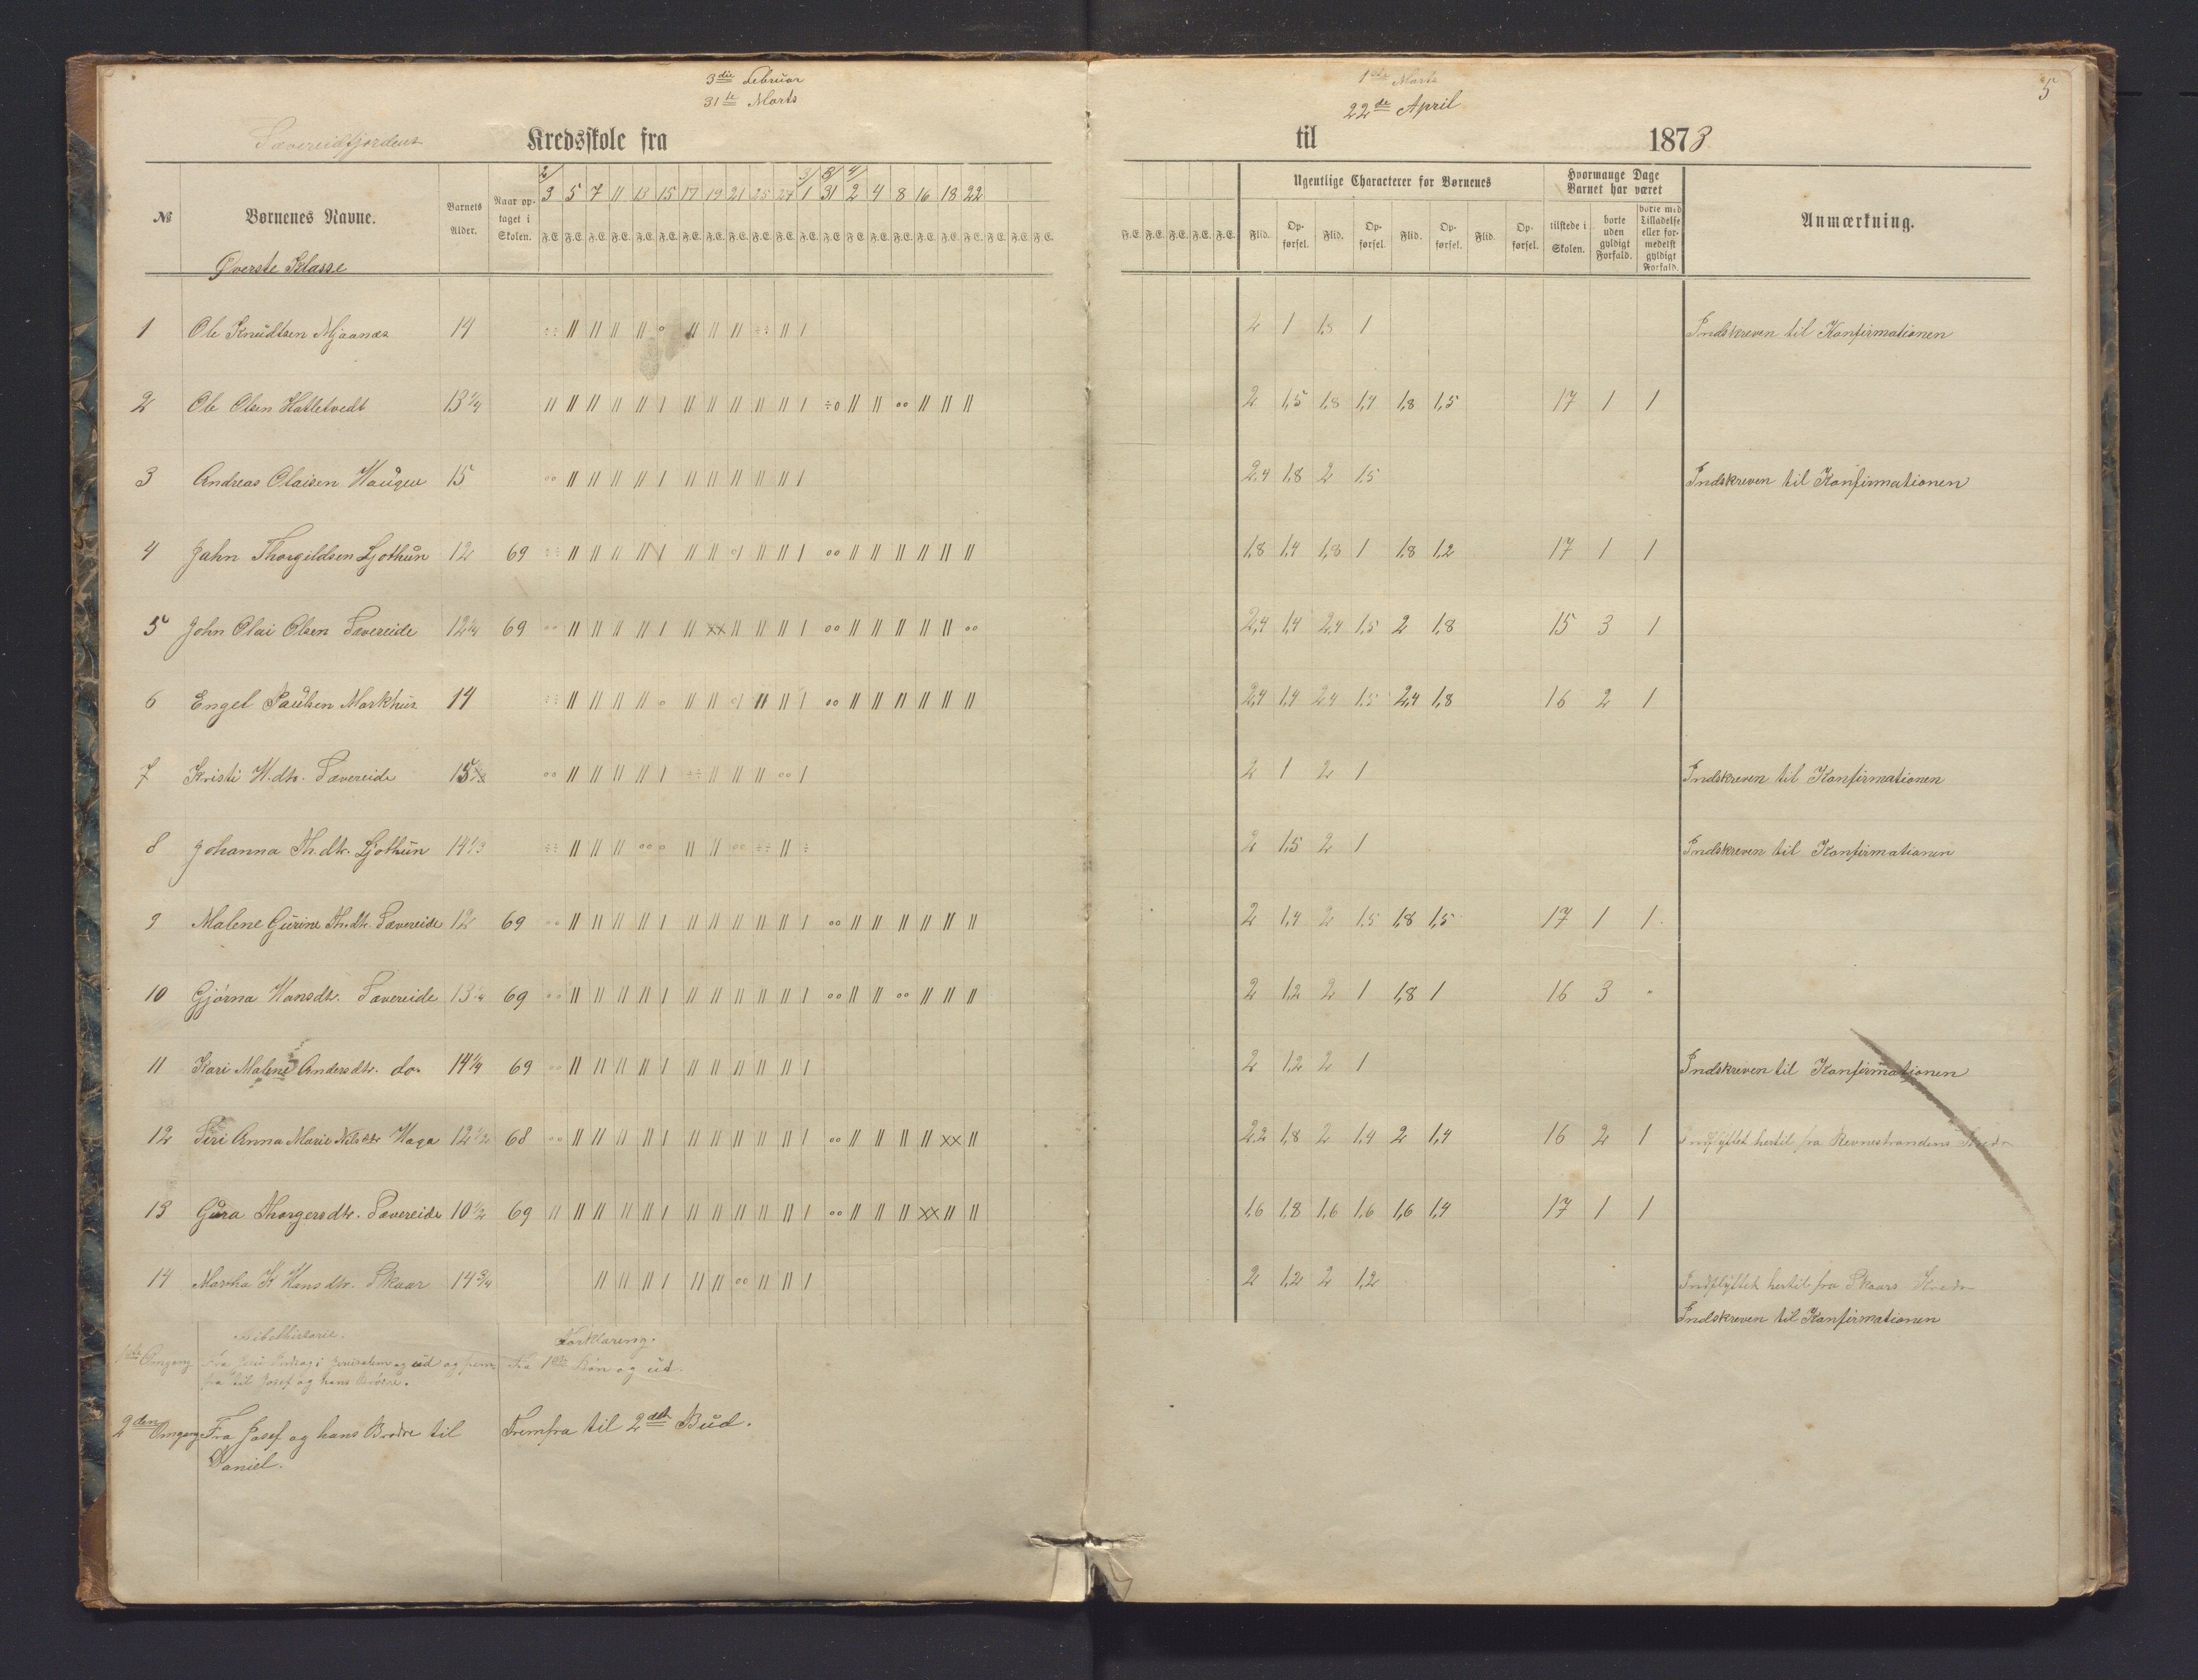 3die Februar
31te Marts
Sævereidfjordens Kredsskole fra
№ Børnenes Navne. Barnets Alder. Naar optaget i Skolen.
2/3 5 7 11 13 15 17 19 21 25 27 3/1 3/31 4/2 4 8 16 18 22
F.E. F.E. F.E. F.E. F.E. F.E. F.E. F.E. F.E. F.E. F.E. F.E. F.E. F.E. F.E. F.E. F.E. F.E. F.E. F.E. F.E. F.E.
Øverste Klasse
1 Ole Knudtsen Mjaanæs 14
2 Ole Olsen Hatletvedt 13 1/4
3 Andreas Olaisen Haugen 15
4 Jahn Thorgildsen Ljothun 12 69
5 John Olai Olsen Sævereide 12 1/4 69
6 Engel Paulsen Markhus 14
7 Kristi H.dtr. Sævereide 15
8 Johanna Th.dtr. Ljothun 14 1/3
9 Malene Gurine Th.dtr. Sævereide 12 69
10 Gjørna Hansdtr. Sævereide 13 1/4 69
11 Kari Malene Andersdtr. do. 14 1/4 69
12 Siri Anna Marie Nilsdtr Haga 12 1/2 68
13 Gura Thorgersdtr. Sævereide 10 1/2 69
14 Martha K Hansdtr. Skaar 14 3/4
Bibelhistorie. Forklaring.
1ste Omgang Fra Jesu Indtog i Jerusalem og ud og frem-
fra til Josef og hans Brødre.
Fra 1ste Bøn og ud.
2den Omgang Fra Josef og hans Brødre til
Daniel.
Fremfra til 2det Bud.
1ste Marts
22de April
5
til 1873
Ugentlige Characterer for Børnenes
Hvormange Dage Barnet har været
F.E. F.E. F.E. F.E. F.E. Flid. Opførsel. Flid. Opførsel. Flid. Opførsel. Flid. Opførsel. tilstede i Skolen. borte uden gyldigt Forfald. borte med Tilladelse eller formedelst gyldigt Forfald. Anmærkning.
2 1 1,8 1 Indskreven til Konfirmationen
2 1,5 1,8 1,4 1,8 1,5 17 1 1
2,4 1,8 2 1,5 Indskreven til Konfirmationen
1,8 1,4 1,8 1 1,8 1,2 17 1 1
2,4 1,4 2,4 1,5 2 1,8 15 3 1
2,4 1,4 2,4 1,5 2,4 1,8 16 2 1
2 1 2 1 Indskreven til Konfirmationen
2 1,5 2 1 Indskreven til Konfirmationen
2 1,4 2 1,5 1,8 1,5 17 1 1
2 1,2 2 1 1,8 1 16 3 "
2 1,2 2 1 Indskreven til Konfirmationen
2,2 1,8 2 1,4 2 1,4 16 2 1 Indflyttet hertil fra Revnestrandens Kreds
1,6 1,8 1,6 1,6 1,6 1,4 17 1 1
2 1,2 2 1,2 Indflyttet hertil fra Skaars Kreds
Indskreven til Konfirmationen